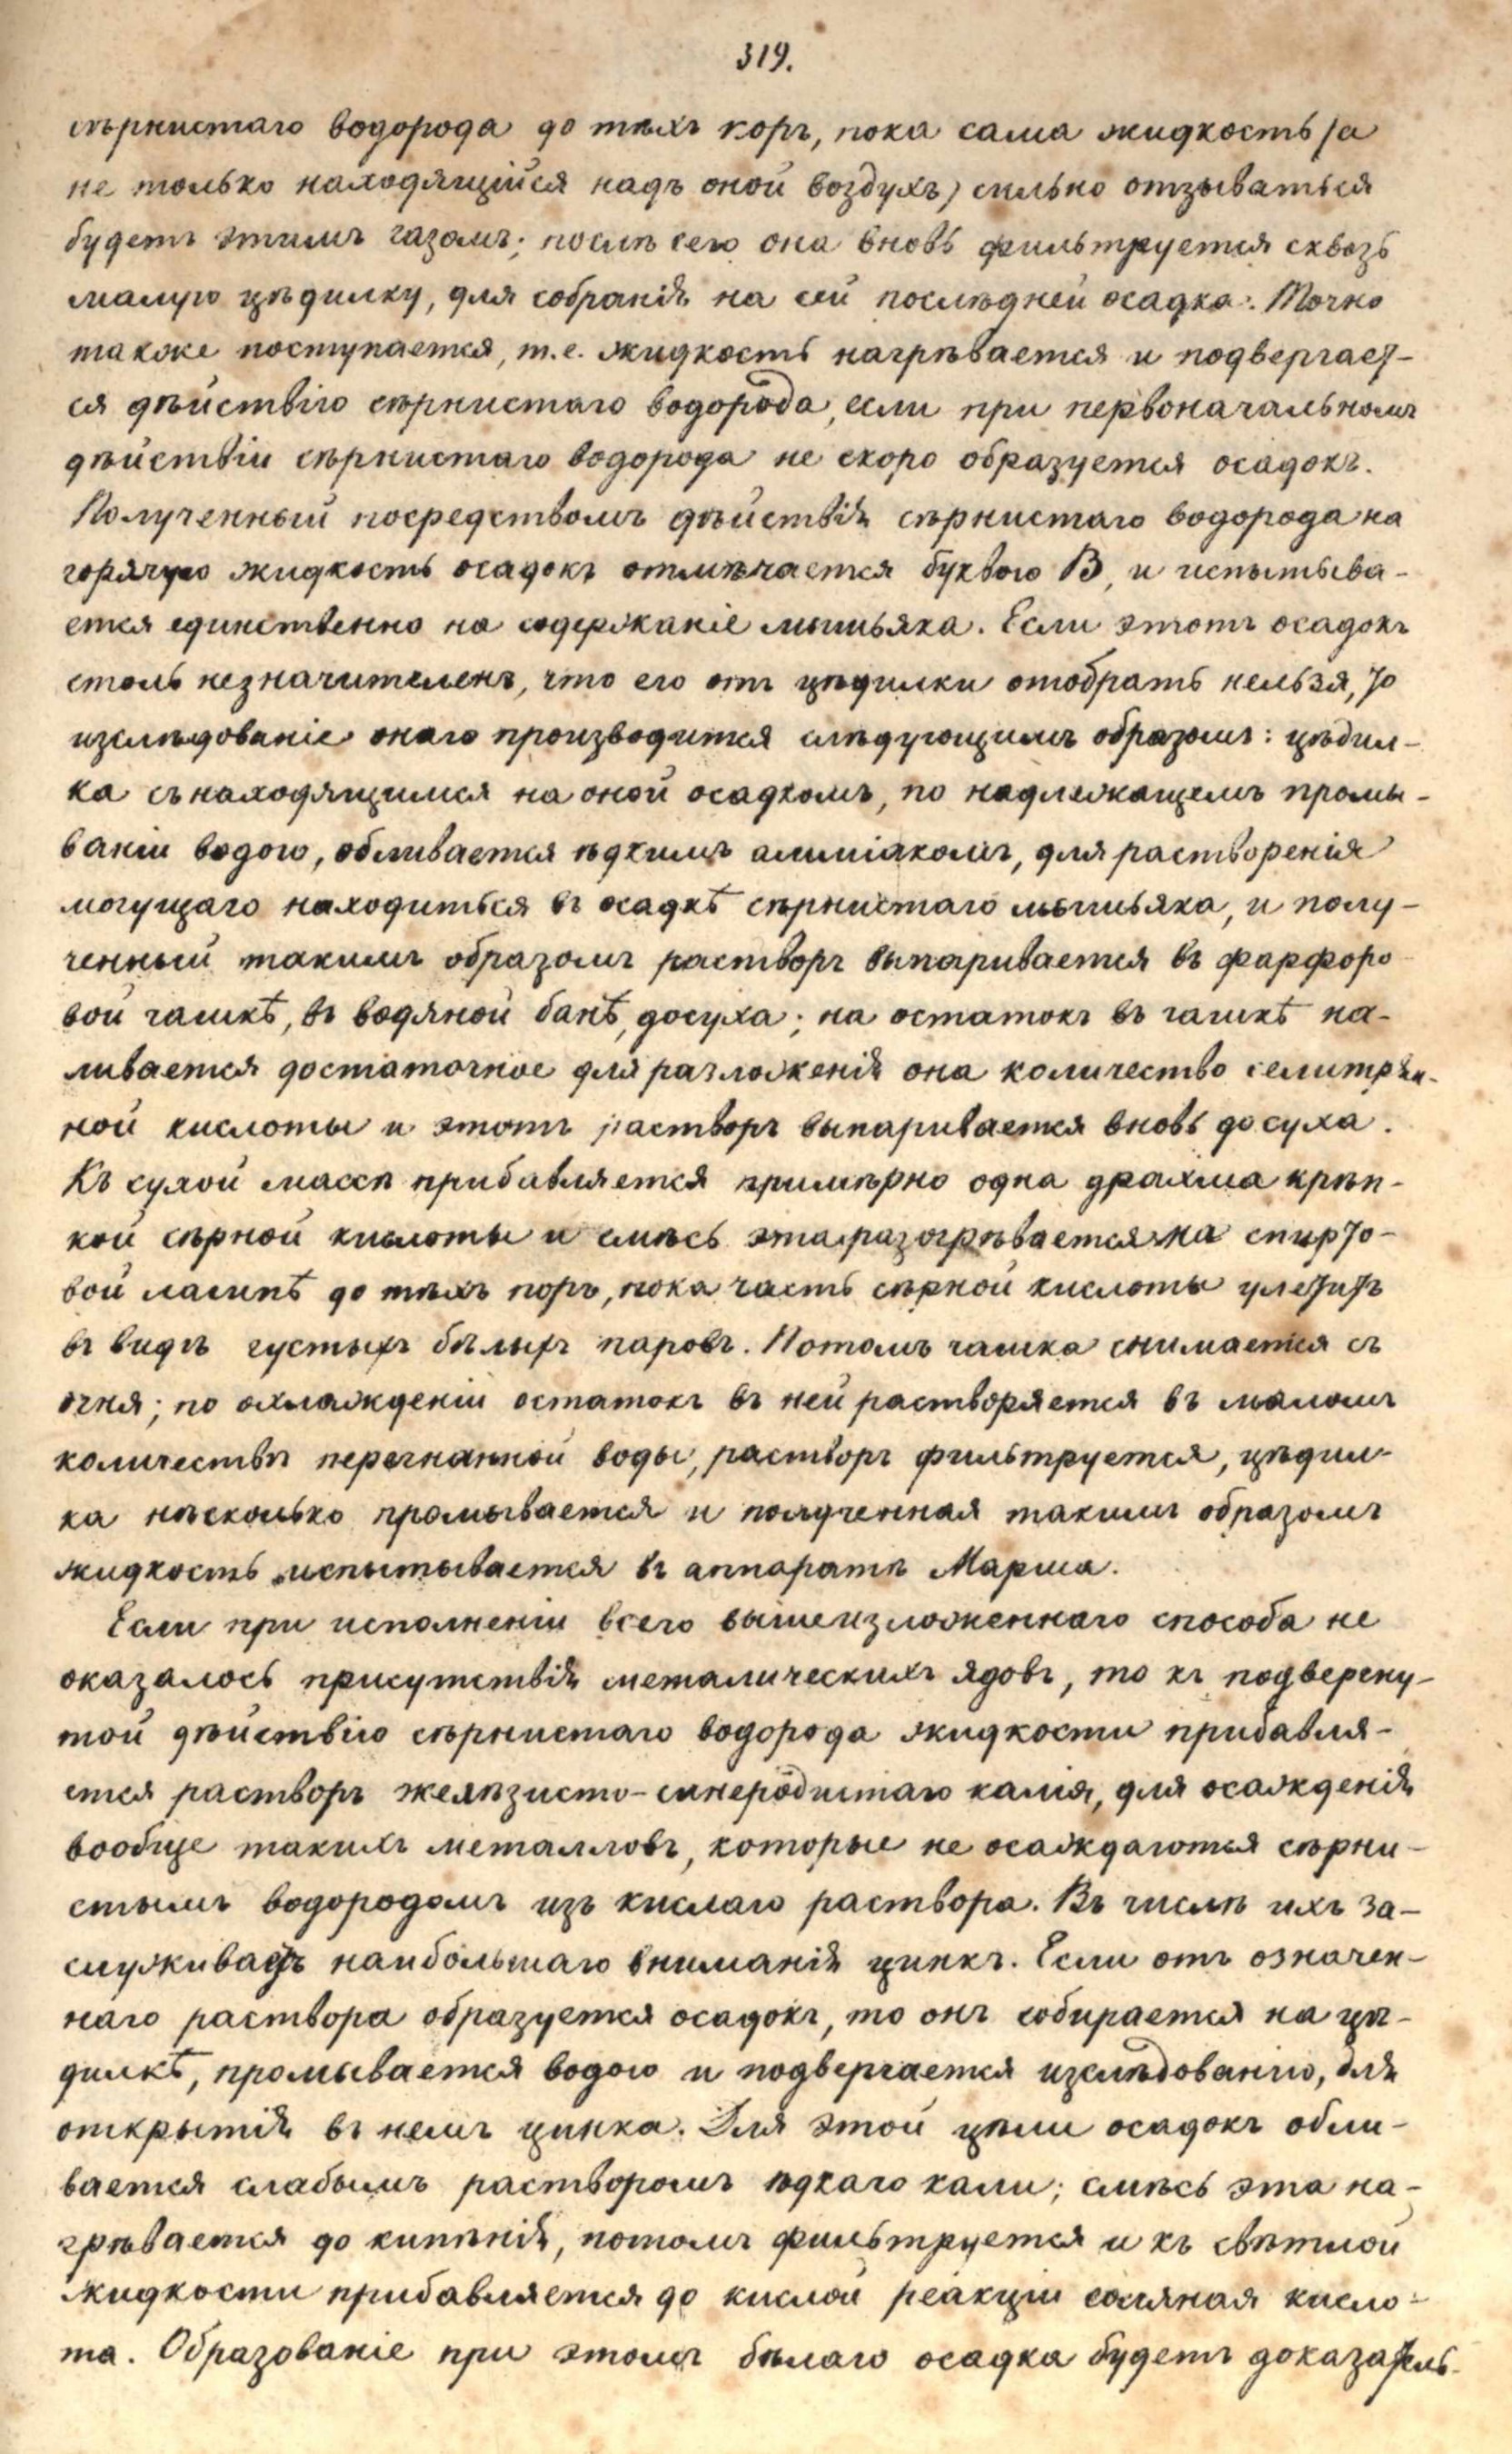 319.
сѣрнистаго водорода до тѣхъ поръ, пока сама жидкость (а
не только находящійся надъ оной воздухъ) сильно отзываться
будетъ этимъ газомъ; послѣ сего она вновь фильтруется сквозь
малую цѣдилку, для собранія на сей послѣдней осадка. Точно
также поступается, т.е. жидкость нагрѣвается и подвергает-
ся дѣйствію сѣрнистаго водорода, если при первоначальномъ
дѣйствіи сѣрнистаго водорода не скоро образуется осадокъ.
Полученный посредствомъ дѣйствія сѣрнистаго водорода на
горячую жидкость осадокъ отмѣчается буквою В, и испытыва-
ется единственно на содержаніе мышьяка. Если этотъ осадокъ
столь незначителенъ, что его отъ цѣдилки отобрать нельзя, то
изслѣдованіе онаго производится слѣдующимъ образомъ: цѣдил-
ка съ находящимся на оной осадкомъ, по надлежащемъ промы-
ваніи водою, обливается ѣдкимъ амміакомъ, для растворенія
могущаго находиться въ осадкѣ сѣрнистаго мышьяка, и полу-
ченный такимъ образомъ растворъ выпаривается въ фарфоро-
вой чашкѣ, въ водяной банѣ, досуха; на остатокъ въ чашкѣ на-
ливается достаточное для разложенія она количество селитрян-
ной кислоты и этотъ растворъ выпаривается вновь досуха.
Къ сухой массѣ прибавляется примѣрно одна драхма крѣп-
кой сѣрной кислоты и смѣсь эта разогрѣвается на спирто-
вой лампѣ до тѣхъ поръ, пока часть сѣрной кислоты улетитъ
въ видѣ густыхъ бѣлыхъ паровъ. Потомъ чашка снимается съ
огня; по охлажденіи остатокъ въ ней растворяется въ маломъ
количествѣ перегнанной воды, растворъ фильтруется, цѣдил-
ка нѣсколько промывается и полученная такимъ образомъ
жидкость испытывается въ аппаратѣ Марша.
Если при исполненіи всего вышеизложеннаго способа не
оказалось присутствія металическихъ ядовъ, то къ подвергну-
той дѣйствію сѣрнистаго водорода жидкости прибавля-
ется растворъ желѣзисто-синеродистаго калія, для осажденія
вообще такихъ металловъ, которые не осаждаются сѣрни-
стымъ водородомъ изъ кислаго раствора. Въ числѣ ихъ за-
служиваетъ наибольшаго вниманія цинкъ. Если отъ означен-
наго раствора образуется осадокъ, то онъ собирается на цѣ-
дилкѣ, промывается водою и подвергается изслѣдованію, для
открытія въ немъ цинка. Для этой цѣли осадокъ обли-
вается слабымъ растворомъ ѣдкаго кали; смѣсь эта на-
грѣвается до кипѣнія, потомъ фильтруется и къ свѣтлой
жидкости прибавляется до кислой реакціи соляная кисло-
та. Образованіе при этомъ бѣлаго осадка будетъ доказатель-